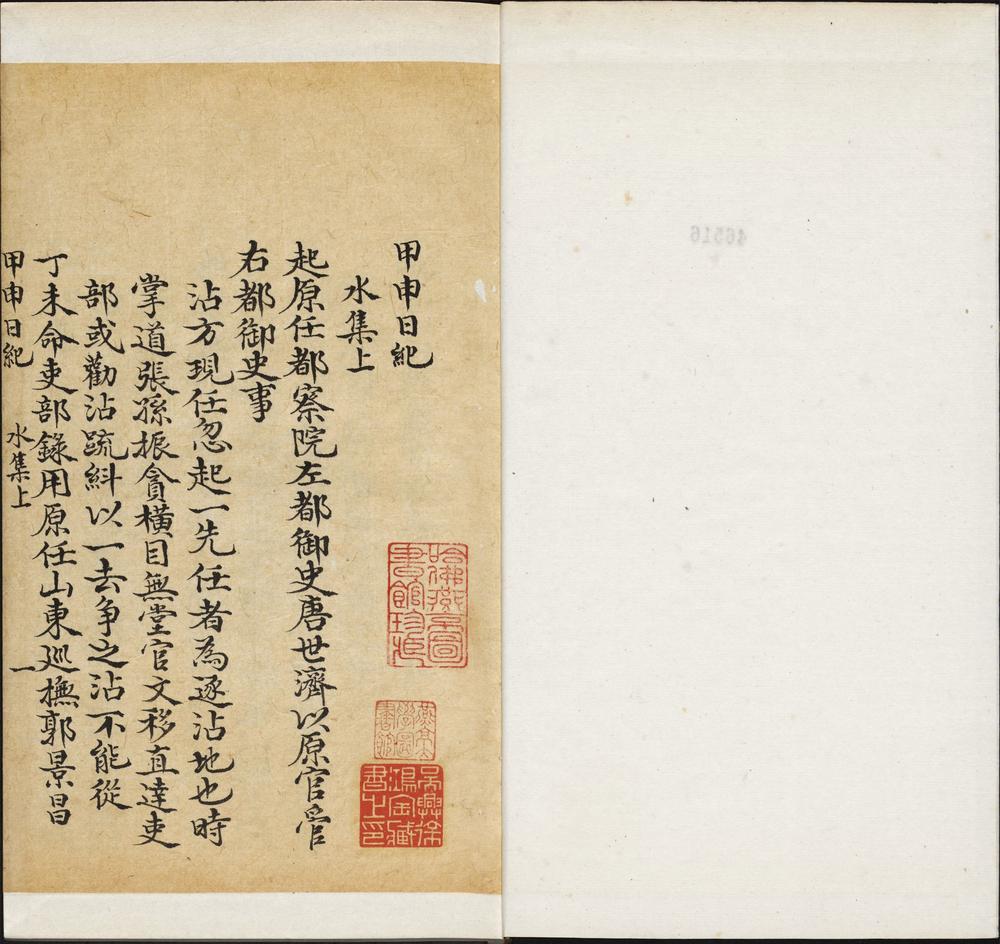 甲申日紀
水集上
起原任都察院左都御史唐世濟以原官管
右都御史事
沾方現任忽起一先任者為逐沾地也時
掌道張孫振貪橫目無堂官文移直達吏
部或勸沾疏糾以一去争之沾不能從
丁未命吏部錄用原任山東巡撫郭景昌
甲申日紀 水集上 一
哈佛燕京圖書館珍藏
燕京大學圖書館
吳興徐鴻金藏書之印
46516